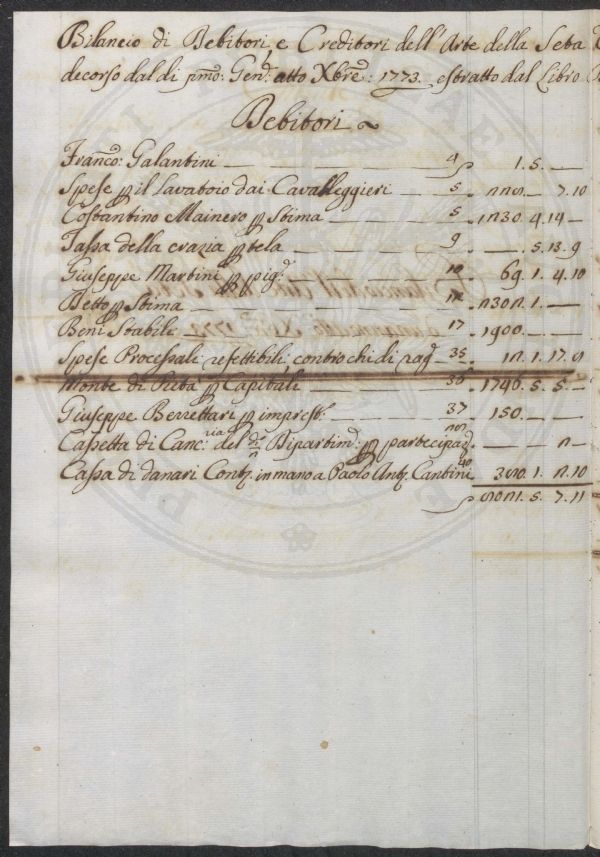 Bilancio di Debitori, e Creditori dell'Arte della Seta
decorso dal di pmo: Gen: a tto Xbre: 1773. estratto dal Libro
Debitori
Franco: Galantini — 4 1.5.—
Spese p il Lavatoio dai Cavalleggieri — 5 228.—7.10
Costantino Mainero p Stima — 5 1230.4.14—
Tassa della crazia p tela — 9 —.5.13.9
Giuseppe Martini p pig: — 10 69.1.4.10
Betto p Stima — 12 2302.1.—
Beni Stabili — 17 1900.—
Spese Processali refettibili contro chi di rag: — 35 12.1.17.8
Monte di Pietà p Capitali — 36 1746.5.5—
Giuseppe Berrettari p imprest: — 37 150.—
Cassetta di Canc:ria del do: Dipartim: p partecipaz: 38 —.—2—
Cassa di danari Conti in mano a Paolo Ant: Cantini 40 380.1.2.10
8021.5.7.11